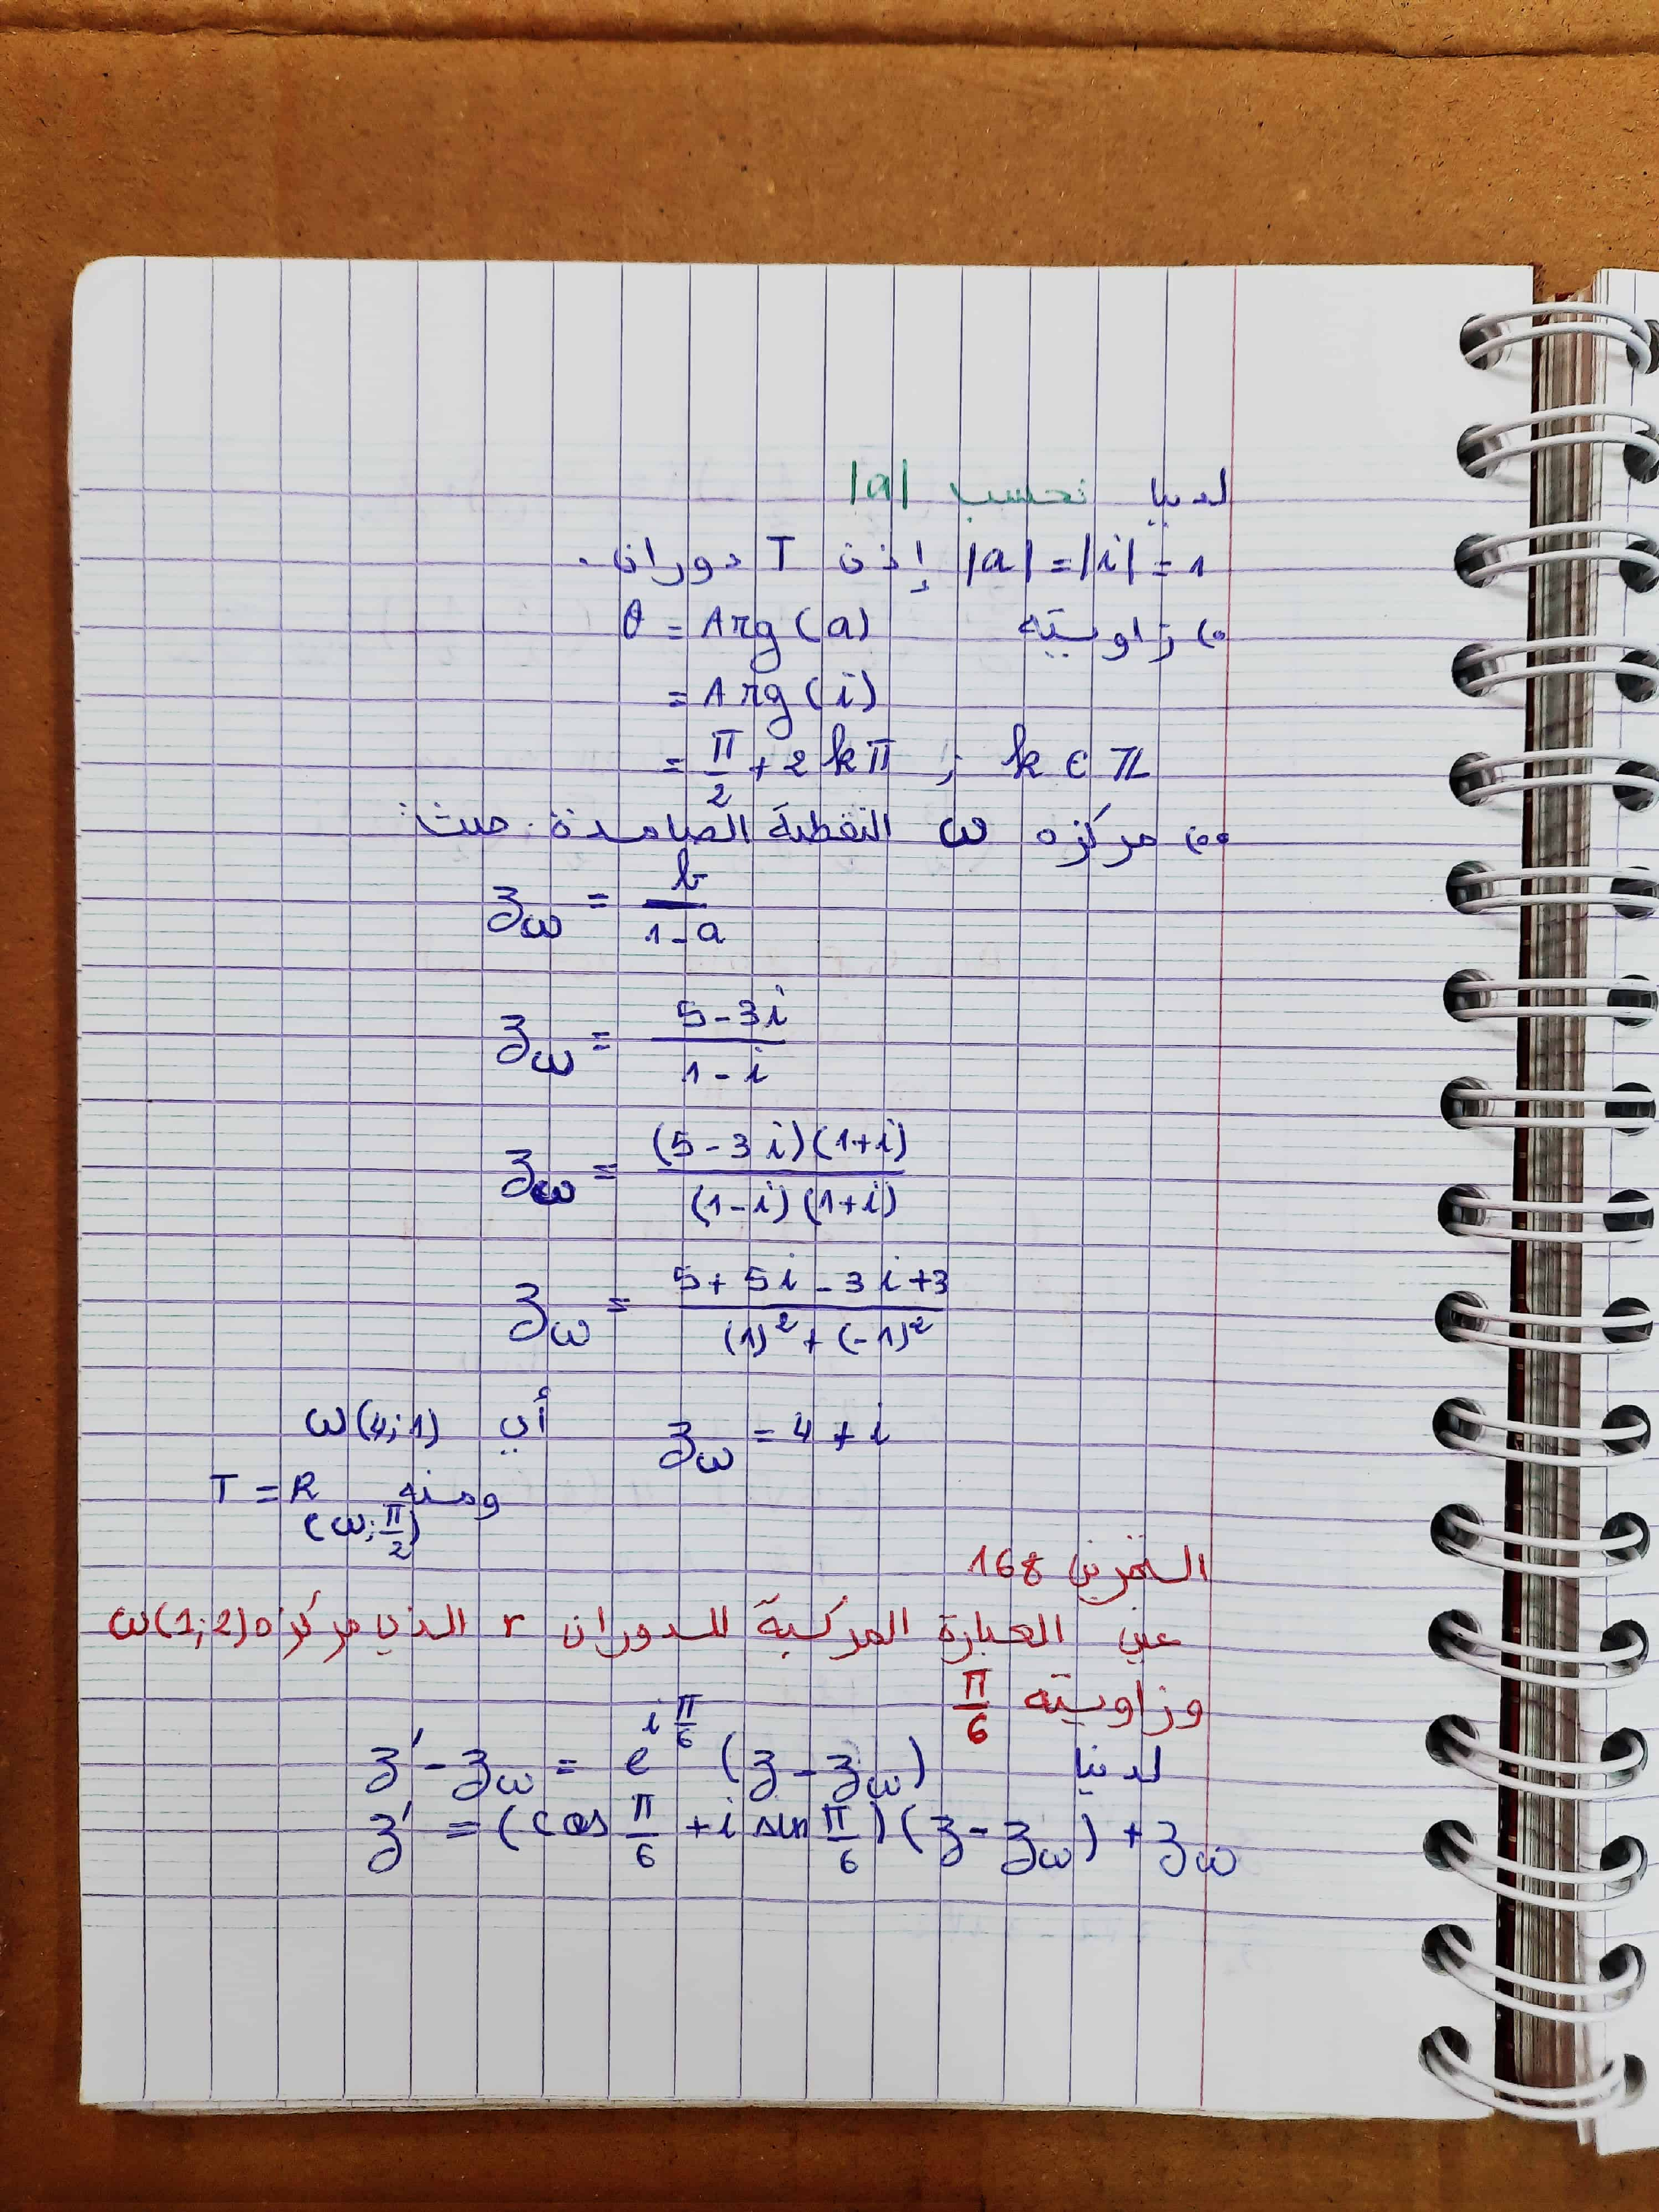 لدينا نحسب |a|
|a| = |i| = 1 إذن T دوران.
زاويته θ = Arg(a)
= Arg(i)
= π/2 + 2kπ ; k ∈ ℤ
مركزه ω النقطة الصامدة حيث:
zω = b/(1-a)
zω = (5-3i)/(1-i)
zω = (5-3i)(1+i)/(1-i)(1+i)
zω = (5+5i-3i+3)/((1)²+(-1)²)
zω = 4+i أي ω(4;1)
ومنه T = R(ω;π/2)
التمرين 168
عين العبارة المركبة للدوران r الذي مركزه ω(1;2)
وزاويته π/6
لدينا z'-zω = e^(iπ/6) (z-zω)
z' = (cos π/6 + i sin π/6)(z-zω) + zω